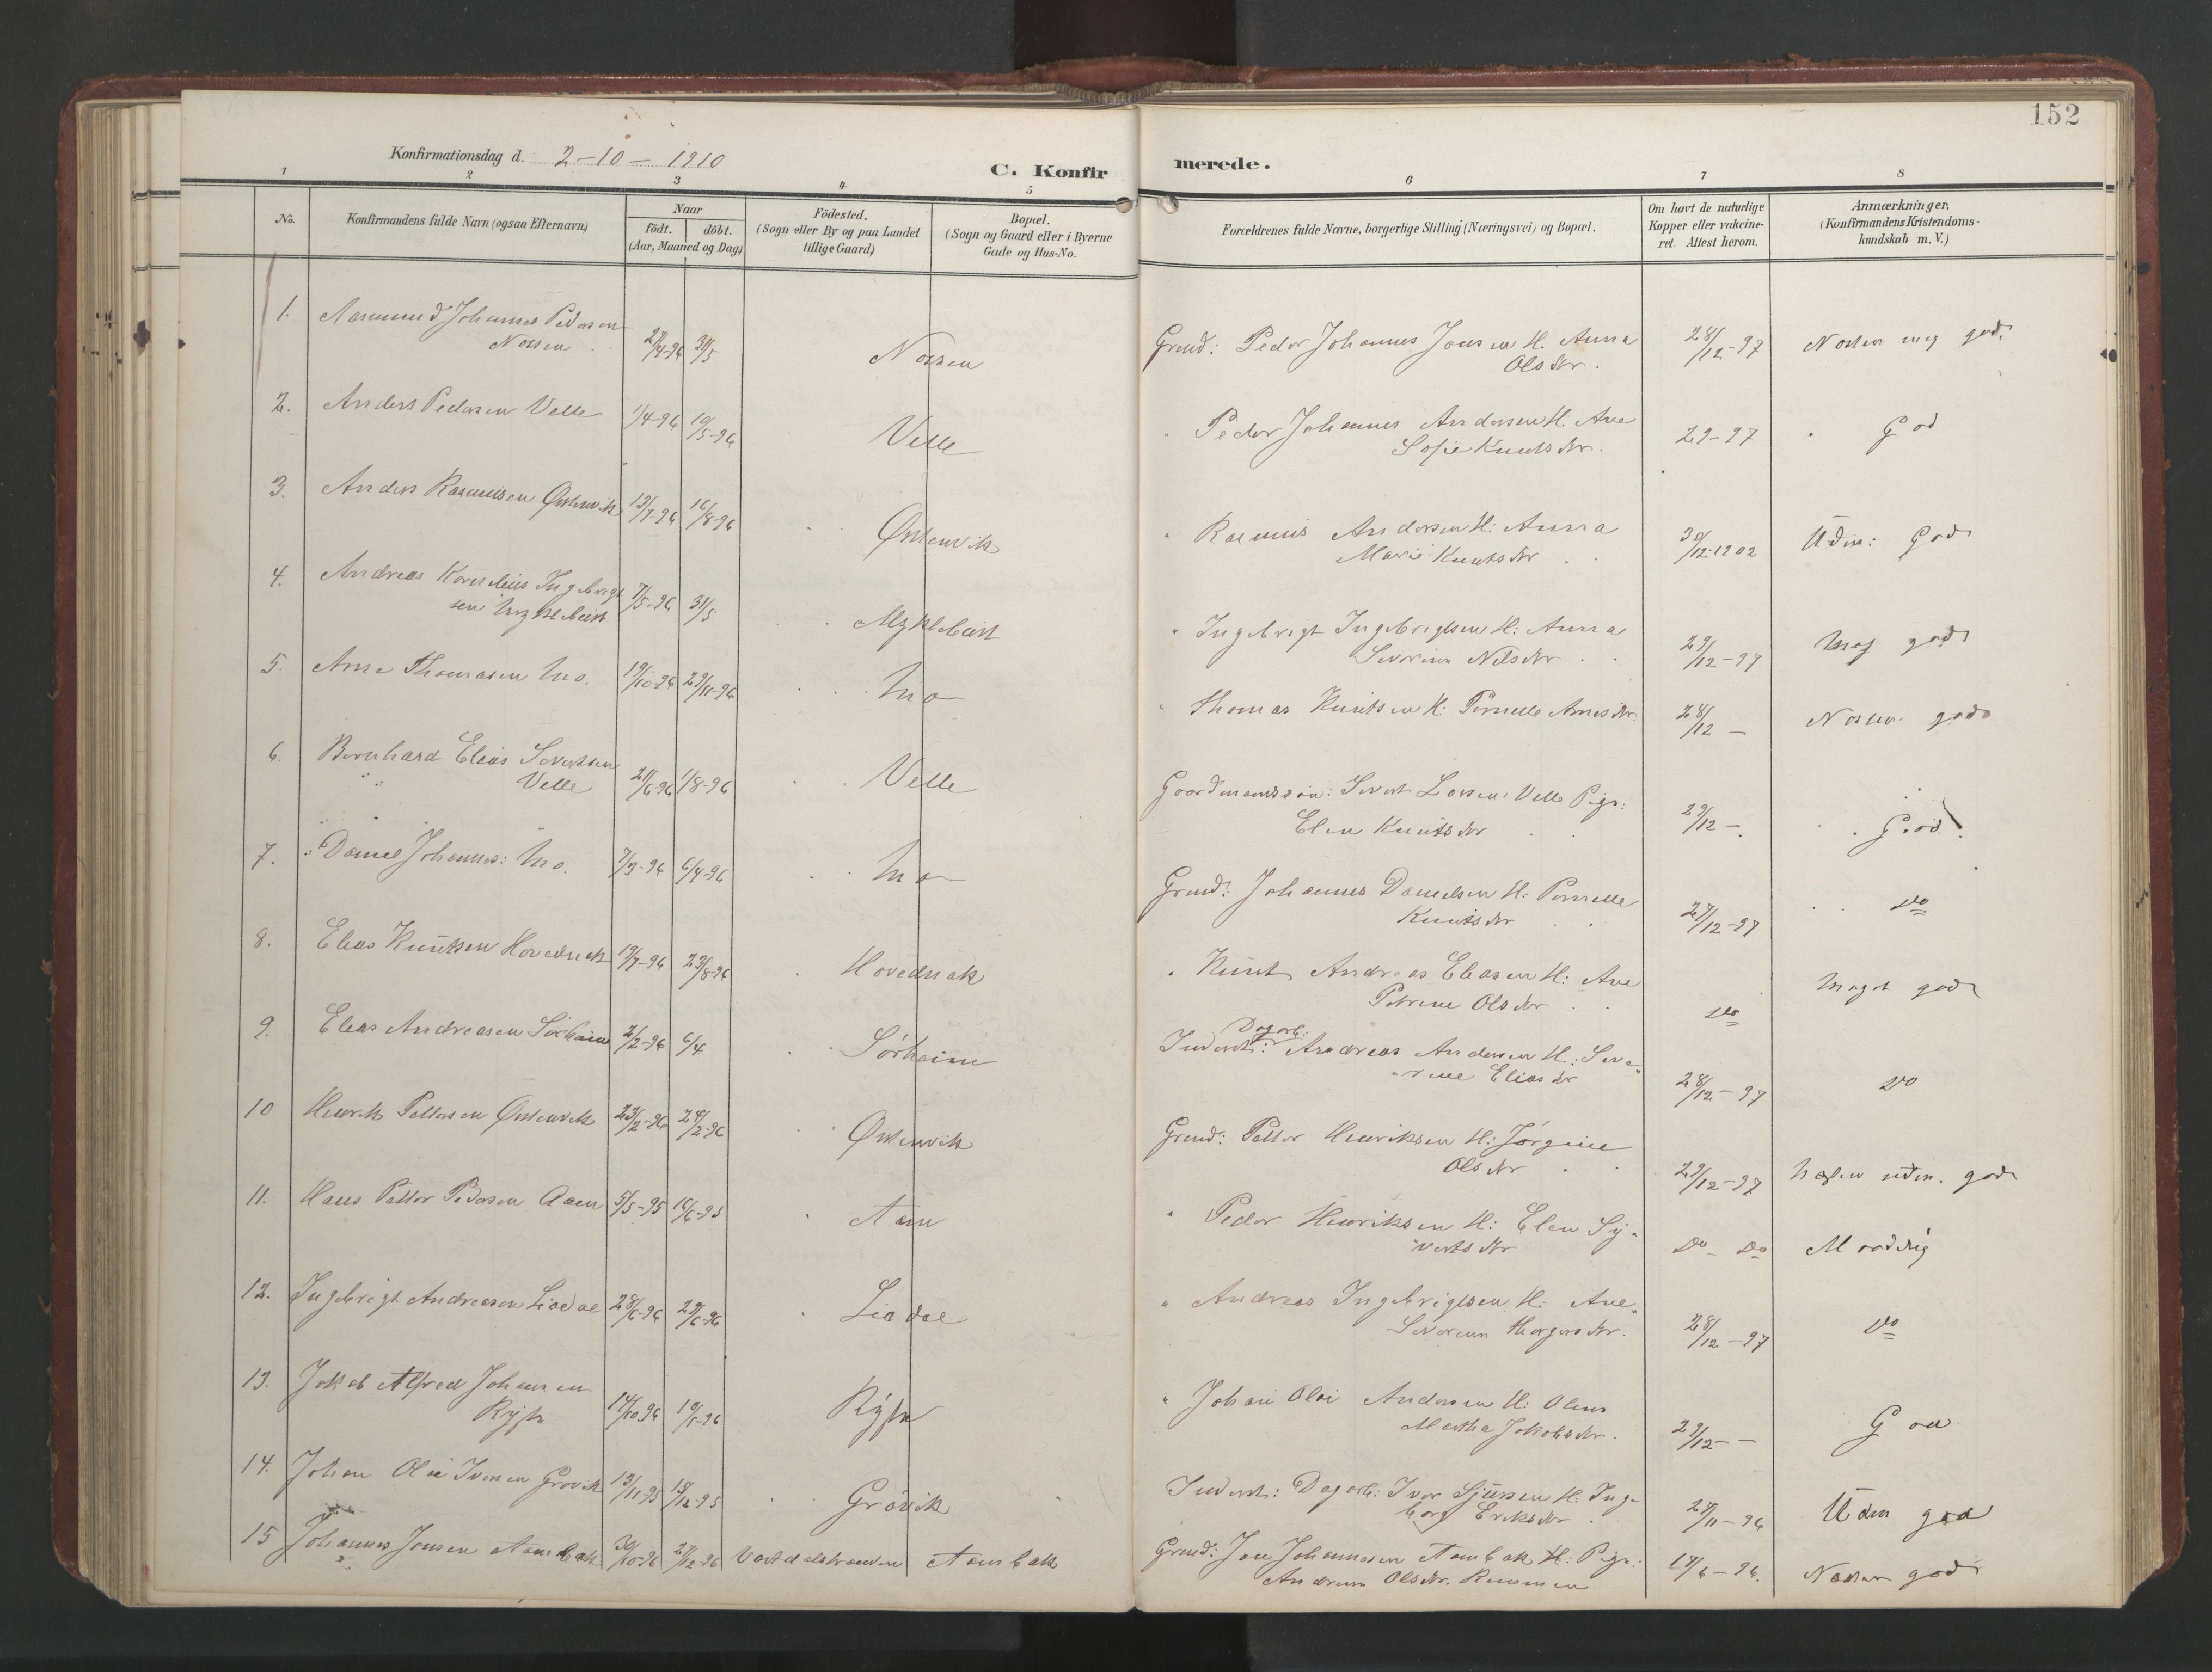 152
Konfirmationsdag d. 2-10-1910
C. Konfirmerede.
1 2 3 4 5 6 7 8
No.
Konfirmandens fulde Navn (ogsaa Efternavn)
Naar
födt. döbt.
(Aar, Maaned og Dag)
Födested.
(Sogn eller By og paa Landet
tillige Gaard)
Bopæl.
(Sogn og Gaard eller i Byerne
Gade og Hus-No.
Forældrenes fulde Navne, borgerlige Stilling (Næringsvei) og Bopæl.
Om havt de naturlige
Kopper eller vakcine-
ret. Attest herom.
Anmærkninger.
(Konfirmandens Kristendoms-
kundskab m. V.)
1. Johannes Pedersen 31/5 Grmd: Peder Johannes Jonsen H. Anna 28/12-97 meg god
Olsdtr.
2. Anders Pedersen Velle 1/4-96 10/5-96 Velle " Peder Johannes Andersen H. Ane 29-97 God
Sofie Knutsdtr.
3. Anders Rasmusen Østenvik 13/7-96 16/8-96 Østenvik " Rasmus Andersen H: Anna 30/12-1902 Üdm: God
Marie Knutsdtr
4. Andreas Kornelius Ingebrigt 7/5-96 31/5 Myklebust " Ingebrigt Ingebrigtsen H: Anna 29/12-97 Meg god
sen Myklebust
Severine Nilsdtr
5. Arne Thomasen Mo. 19/10-96 29/11-96 Mo " Thomas Knutsen H: Pernelle Arnesdtr. 28/12 - god
6. Bernhard Elias Sivertsen 21/6-96 1/8-96 Velle Gaardmandssøn: Sivert Larsen Velle Pige: 29/12 -. God.
Velle
Elen Knutsdtr
7. Daniel Johannes: Mo. 7/3-96 6/4-96 Mo Grmd: Johannes Danielsen H: Pernelle 27/12-97 Do
Knutsdtr
8. Elias Knutsen Hovednak 19/7-96 23/8-96 Hovednak " Knut Andreas Eliasen H: Ane Do Meget god
Petrine Olsdtr
9. Elias Andreasen Sørheim 2/2-96 6/4 Sørheim Inderst: Dagarb: Andreas Andersen H: Seve- 28/12-97 Do
rine Eliasdtr
10 Henrik Pettersen Østenvik 23/2-96 24/2-96 Østenvik Grmd: Petter Henriksen H: Jørgine 29/12-97 udm. god
Olsdtr
11. Hans Petter Pedersen Aam 5/5-95 16/6-95 Aam " Peder Henriksen H: Elen Sy- Do - Do Maadelig
vertsdtr
12. Ingebrigt Andreasen Liadal 28/6-96 29/6-96 Liadal " Andreas Ingebrigtsen H: Ane 28/12-97 Do
13. Jakob Alfred Johansen 14/10-96 Grmd " Johan Olai Andersen H: 29/12 - God
Martha Jakobsdtr.
14. Johan Olai Iversen Grøvik 13/11-95 15/12-95 Grøvik Inderst: Dagarb: Iver Sjursen H: Inge- 27/11-96 Üdm god
borg Eriksdtr
15 Johannes Jonsen Aambak 27/12-96 Vartdalstranden Aambak Grmd: Jon Johannesen Aambak H: Pige: 17/6-96. god
Olsdtr.